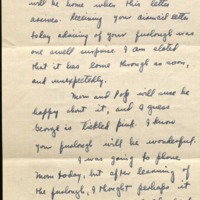 will be home when this letter
arrives. Receiving your airmail letter
today advising of your furlough was
one swell surprise. I am elated
that it has come through so soon,
and unexpectedly.
Mom and Pop will sure be
happy about it, and I guess
George is tickled pink. I know
your furlough will be wonderful.
I was going to phone
Mom today, but after learning of
the furlough, I thought perhaps it